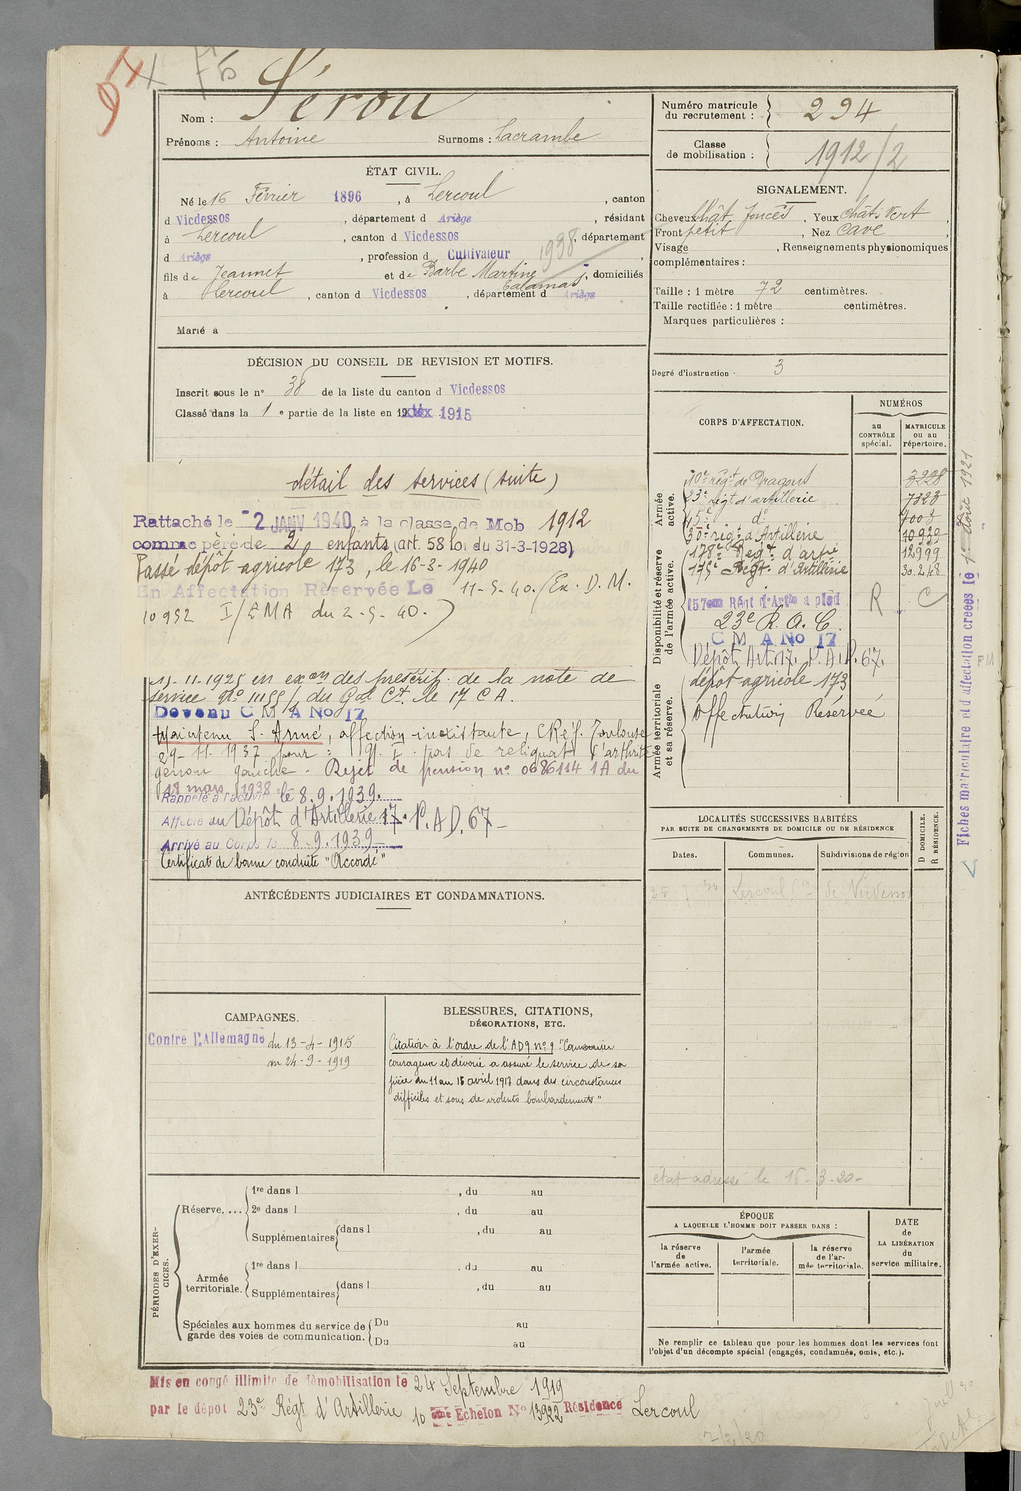 97 X 75
Nom : Sérou
Prénoms : Antoine Surnoms : Lacrambe
Numéro matricule du recrutement : 294
Classe de mobilisation : 1912/2
ÉTAT CIVIL.
Né le 16 Février 1896, à Lercoul, canton
d Vicdessos, département d Ariège, résidant
à Lercoul, canton d Vicdessos, département
d Ariège, profession d Cultivateur 1938
fils de Jeannet et de Barbe Martine Calamas, domiciliés
à Lercoul, canton d Vicdessos, département d Ariège
Marié à
SIGNALEMENT.
Cheveux chât foncés, Yeux chât. vert,
Front petit, Nez cave,
Visage , Renseignements physionomiques
complémentaires :
Taille : 1 mètre 72 centimètres.
Taille rectifiée : 1 mètre centimètres.
Marques particulières :
Degré d'instruction 3
DÉCISION DU CONSEIL DE REVISION ET MOTIFS.
Inscrit sous le n° 38 de la liste du canton d Vicdessos
Classé dans la 1 e partie de la liste en 1915
détail des services (suite)
Rattaché le -2 JANV 1940 à la classe de Mob 1912
comme père de 2 enfants (art. 58 loi du 31-3-1928)
Passé dépôt agricole 173, le 16-3-1940
En Affectation Réservée Le 11-5-40. (Ex. D. M.
10952 I/EMA du 2-5-40.)
15-11-1925 en exon des prescrip. de la note de
service n° du Gal Ct. le 17 C A.
Devenu C M A No 17
Maintenu S. Armé, affection inexistante, CRéf. Toulouse
29-11-1937 pour : pas de reliquat d'arthrite
genou gauche - Rejet de pension n° 0686114 1A du
18 mars 1938
Rappelé à l'activité le 8.9.1939.
Affecté au Dépôt d'Artillerie 17. P.A.D. 67-
Arrivé au Corps le 8.9.1939
Certificat de bonne conduite "Accordé"
CORPS D'AFFECTATION.
NUMÉROS
au CONTRÔLE spécial.
MATRICULE ou au répertoire.
Armée active.
Disponibilité et réserve de l'armée active.
Armée territoriale et sa réserve.
10e régt de Dragons 3228
23e régt d'artillerie 7383
do
régt d'Artillerie 10929
178e Régt d'artie 12999
175e Régt. d'Artillerie
157eme Régt d'Artie à pied R C
23e R. A. C.
C M A No 17
Dépôt Art. 17. P.A.D. 67.
dépôt agricole 173
Affectation Réservée
Fiches matriculaire et d'affectation créées le 1er Août 1921
LOCALITÉS SUCCESSIVES HABITÉES
PAR SUITE DE CHANGEMENTS DE DOMICILE OU DE RÉSIDENCE
Dates. Communes. Subdivisions de région
D DOMICILE.
R RÉSIDENCE.
Lercoul de Vicdessos
état adressé le 16-3-20-
ANTÉCÉDENTS JUDICIAIRES ET CONDAMNATIONS.
CAMPAGNES.
Contre l'Allemagne du 13-4-1915
au 24-9-1919
BLESSURES, CITATIONS,
DÉCORATIONS, ETC.
Citation à l'ordre de l'AD9 n° 9 "Canonnier
courageux et dévoué a assuré le service de sa
pièce du 11 au 15 avril 1917 dans des circonstances
difficiles et sous de violents bombardements"
PÉRIODES D'EXERCICES.
Réserve, ...
1re dans l , du au
2e dans l , du au
Supplémentaires dans l , du au
Armée territoriale.
1re dans l , du au
Supplémentaires dans l , du au
Spéciales aux hommes du service de garde des voies de communication.
Du au
Du au
ÉPOQUE
A LAQUELLE L'HOMME DOIT PASSER DANS :
la réserve de l'armée active.
l'armée territoriale.
la réserve de l'armée territoriale.
DATE de LA LIBÉRATION du service militaire.
Ne remplir ce tableau que pour les hommes dont les services font
l'objet d'un décompte spécial (engagés, condamnés, omis, etc.).
Mis en congé illimité de démobilisation le 24 Septembre 1919
par le dépôt 23e Régt d'Artillerie 10 ème Échelon N° 13922 Résidence Lercoul